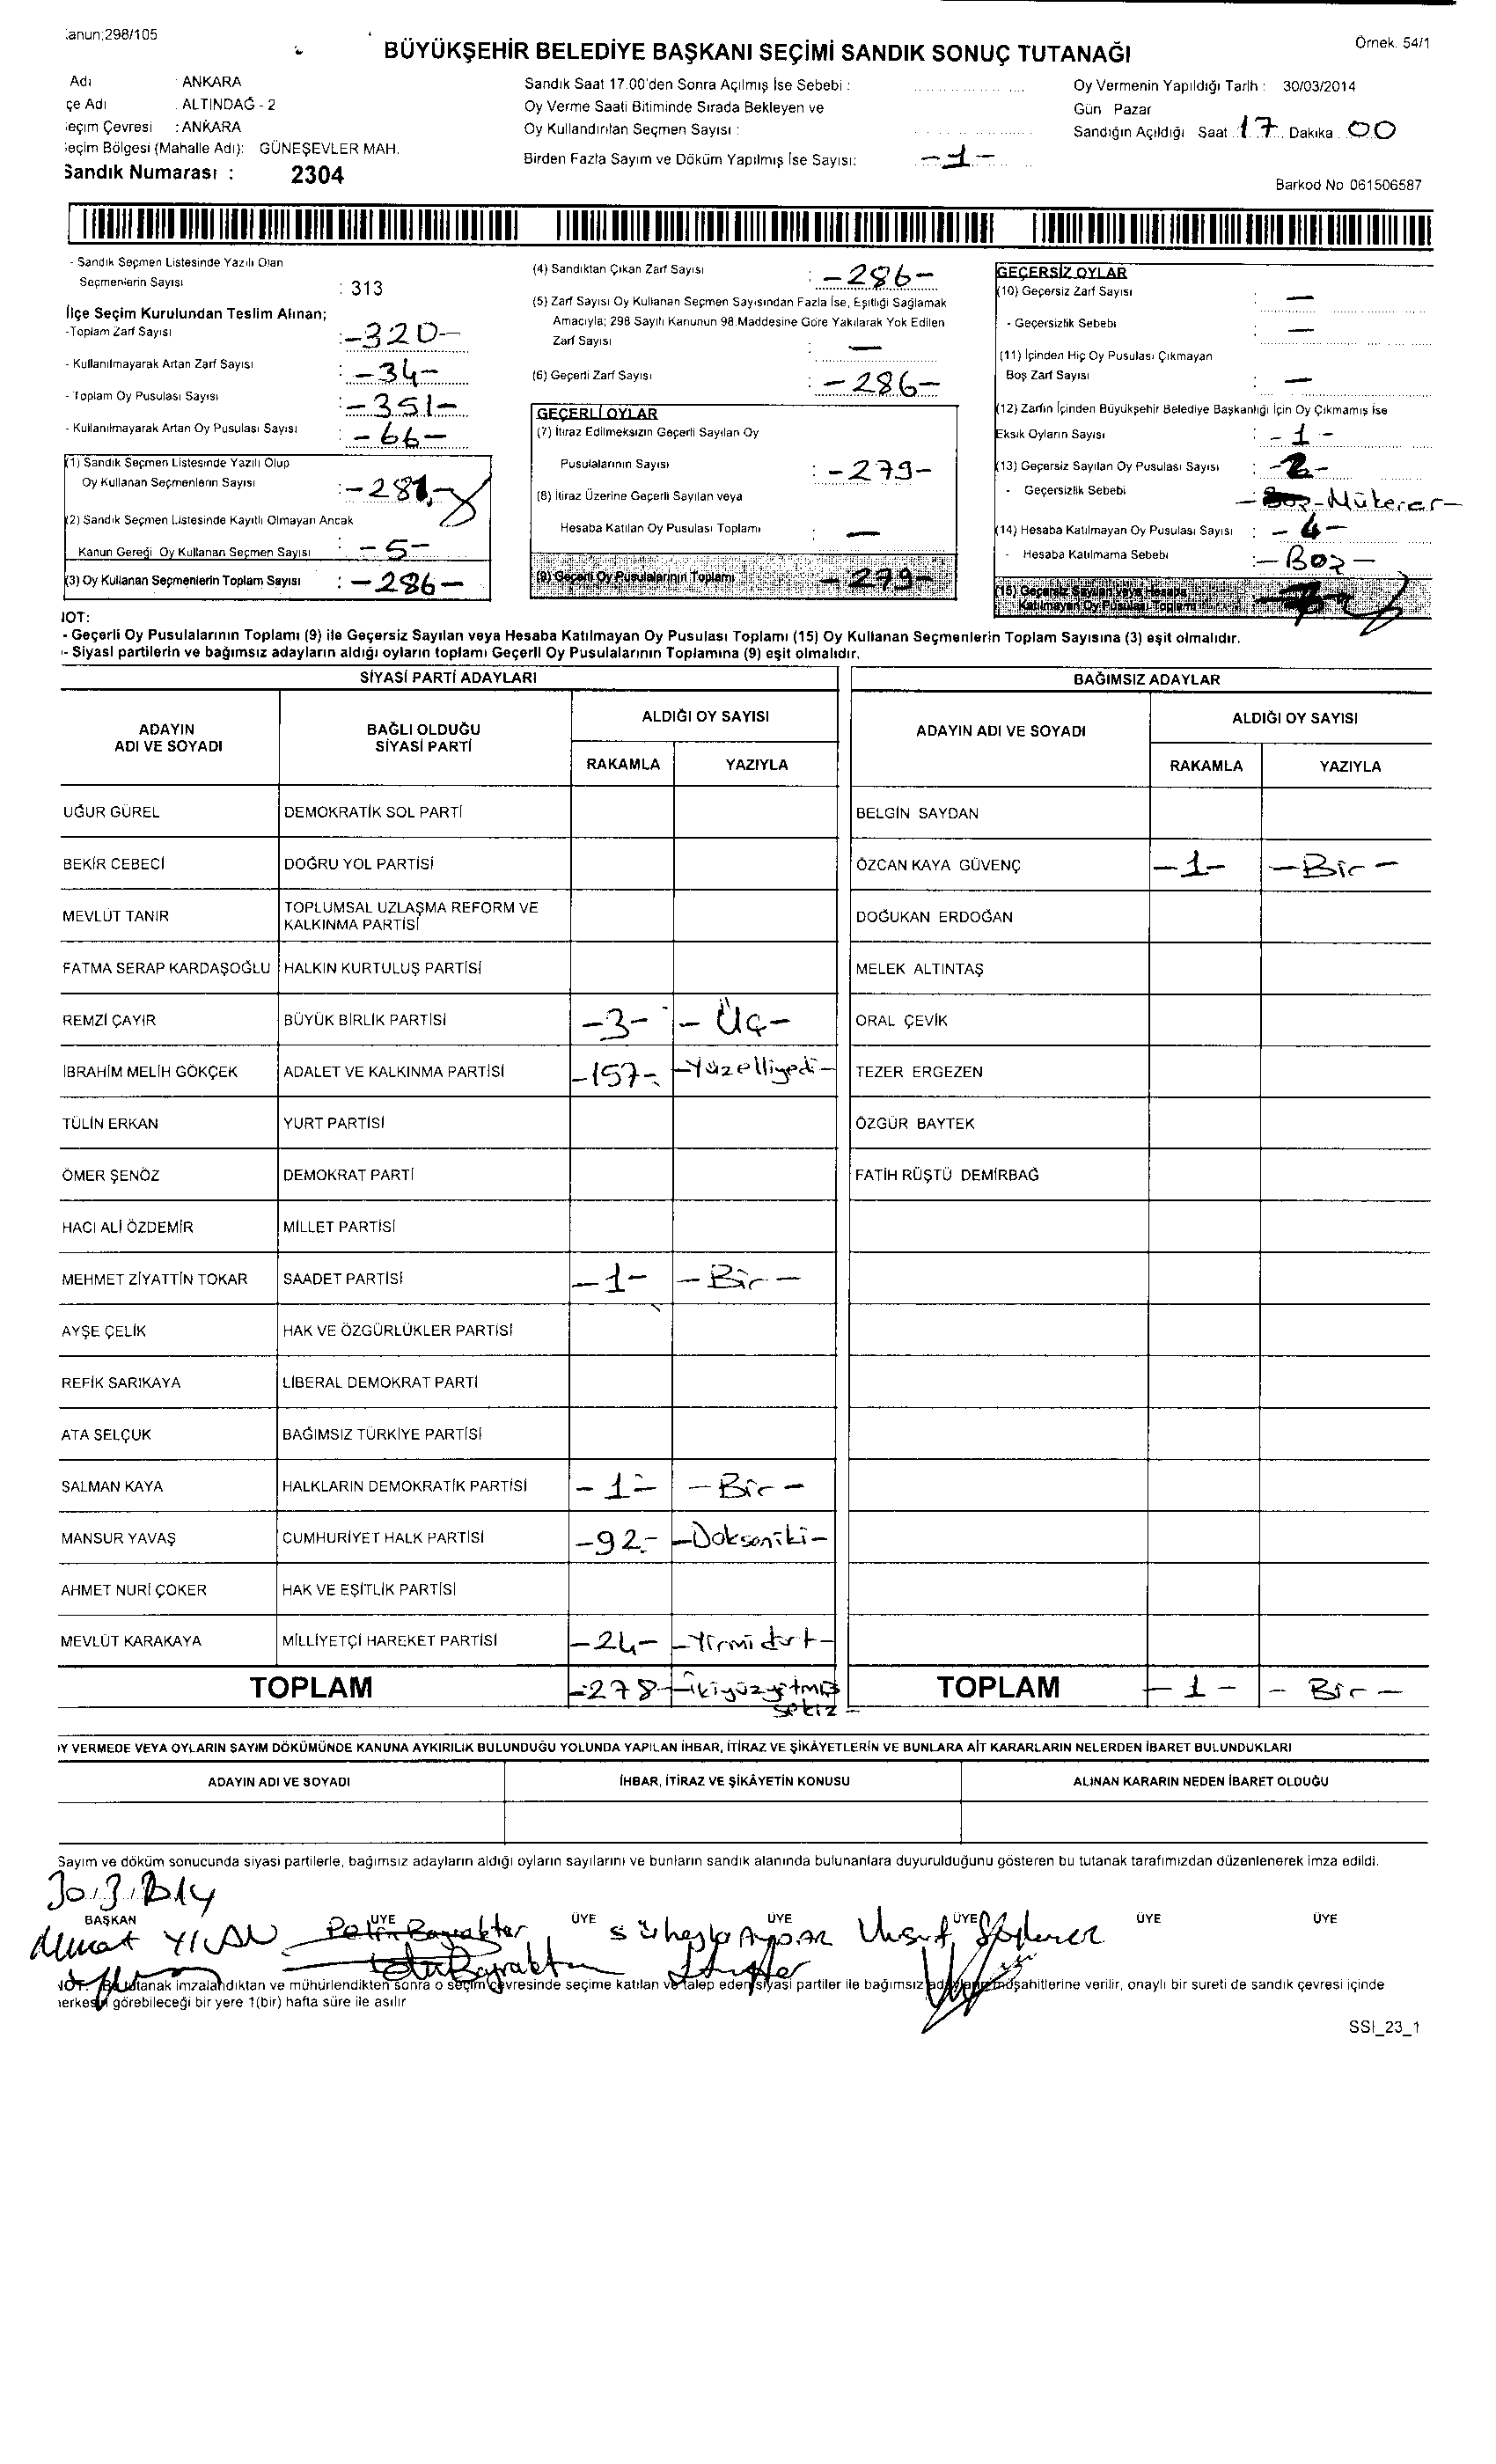 :anun:298/105
BÜYÜKŞEHİR BELEDİYE BAŞKANI SEÇİMİ SANDIK SONUÇ TUTANAĞI
Örnek. 54/1
Adı : ANKARA
çe Adı : ALTINDAĞ - 2
eçim Çevresi : ANKARA
eçim Bölgesi (Mahalle Adı): GÜNEŞEVLER MAH.
Sandık Numarası : 2304
Sandık Saat 17.00'den Sonra Açılmış İse Sebebi :
Oy Verme Saati Bitiminde Sırada Bekleyen ve
Oy Kullandırılan Seçmen Sayısı :
Birden Fazla Sayım ve Döküm Yapılmış İse Sayısı: -1-
Oy Vermenin Yapıldığı Tarih : 30/03/2014
Gün Pazar
Sandığın Açıldığı Saat 17 Dakika 00
Barkod No 061506587
- Sandık Seçmen Listesinde Yazılı Olan
Seçmenlerin Sayısı : 313
İlçe Seçim Kurulundan Teslim Alınan;
-Toplam Zarf Sayısı :-320-
- Kullanılmayarak Artan Zarf Sayısı :-34-
- Toplam Oy Pusulası Sayısı :-351-
- Kullanılmayarak Artan Oy Pusulası Sayısı :-66-
(1) Sandık Seçmen Listesinde Yazılı Olup
Oy Kullanan Seçmenlerin Sayısı :-281-
(2) Sandık Seçmen Listesinde Kayıtlı Olmayan Ancak
Kanun Gereği Oy Kullanan Seçmen Sayısı :-5-
(3) Oy Kullanan Seçmenlerin Toplam Sayısı :-286-
(4) Sandıktan Çıkan Zarf Sayısı :-286-
(5) Zarf Sayısı Oy Kullanan Seçmen Sayısından Fazla İse, Eşitliği Sağlamak
Amacıyla; 298 Sayılı Kanunun 98.Maddesine Göre Yakılarak Yok Edilen
Zarf Sayısı : -
(6) Geçerli Zarf Sayısı :-286-
GEÇERLİ OYLAR
(7) İtiraz Edilmeksizin Geçerli Sayılan Oy
Pusulalarının Sayısı :-279-
(8) İtiraz Üzerine Geçerli Sayılan veya
Hesaba Katılan Oy Pusulası Toplamı : -
(9) Geçerli Oy Pusulalarının Toplamı -279-
GEÇERSİZ OYLAR
(10) Geçersiz Zarf Sayısı : -
- Geçersizlik Sebebi : -
(11) İçinden Hiç Oy Pusulası Çıkmayan
Boş Zarf Sayısı : -
(12) Zarfın İçinden Büyükşehir Belediye Başkanlığı İçin Oy Çıkmamış İse
Eksik Oyların Sayısı :-1-
(13) Geçersiz Sayılan Oy Pusulası Sayısı :-2-
- Geçersizlik Sebebi -Müterer-
(14) Hesaba Katılmayan Oy Pusulası Sayısı :-4-
- Hesaba Katılmama Sebebi :-Boz-
(15) Geçersiz Sayılan veya Hesaba
Katılmayan Oy Pusulası Toplamı
IOT:
- Geçerli Oy Pusulalarının Toplamı (9) ile Geçersiz Sayılan veya Hesaba Katılmayan Oy Pusulası Toplamı (15) Oy Kullanan Seçmenlerin Toplam Sayısına (3) eşit olmalıdır.
- Siyasi partilerin ve bağımsız adayların aldığı oyların toplamı Geçerli Oy Pusulalarının Toplamına (9) eşit olmalıdır.
SİYASİ PARTİ ADAYLARI
ADAYIN ADI VE SOYADI
BAĞLI OLDUĞU SİYASİ PARTİ
ALDIĞI OY SAYISI
RAKAMLA YAZIYLA
UĞUR GÜREL DEMOKRATİK SOL PARTİ
BEKİR CEBECİ DOĞRU YOL PARTİSİ
MEVLÜT TANIR TOPLUMSAL UZLAŞMA REFORM VE KALKINMA PARTİSİ
FATMA SERAP KARDAŞOĞLU HALKIN KURTULUŞ PARTİSİ
REMZİ ÇAYIR BÜYÜK BİRLİK PARTİSİ -3- -Üç-
İBRAHİM MELİH GÖKÇEK ADALET VE KALKINMA PARTİSİ -157- -Yüzelliyedi-
TÜLİN ERKAN YURT PARTİSİ
ÖMER ŞENÖZ DEMOKRAT PARTİ
HACI ALİ ÖZDEMİR MİLLET PARTİSİ
MEHMET ZİYATTİN TOKAR SAADET PARTİSİ -1- -Bir-
AYŞE ÇELİK HAK VE ÖZGÜRLÜKLER PARTİSİ
REFİK SARIKAYA LİBERAL DEMOKRAT PARTİ
ATA SELÇUK BAĞIMSIZ TÜRKİYE PARTİSİ
SALMAN KAYA HALKLARIN DEMOKRATİK PARTİSİ -1- -Bir-
MANSUR YAVAŞ CUMHURİYET HALK PARTİSİ -92- -Doksaniki-
AHMET NURİ ÇOKER HAK VE EŞİTLİK PARTİSİ
MEVLÜT KARAKAYA MİLLİYETÇİ HAREKET PARTİSİ -24- -Yirmidört-
TOPLAM -278- -ikiyüzyetmiş
sekiz-
BAĞIMSIZ ADAYLAR
ADAYIN ADI VE SOYADI
ALDIĞI OY SAYISI
RAKAMLA YAZIYLA
BELGİN SAYDAN
ÖZCAN KAYA GÜVENÇ -1- -Bir-
DOĞUKAN ERDOĞAN
MELEK ALTINTAŞ
ORAL ÇEVİK
TEZER ERGEZEN
ÖZGÜR BAYTEK
FATİH RÜŞTÜ DEMİRBAĞ
TOPLAM -1- -Bir-
IY VERMEDE VEYA OYLARIN SAYIM DÖKÜMÜNDE KANUNA AYKIRILIK BULUNDUĞU YOLUNDA YAPILAN İHBAR, İTİRAZ VE ŞİKÂYETLERİN VE BUNLARA AİT KARARLARIN NELERDEN İBARET BULUNDUKLARI
ADAYIN ADI VE SOYADI
İHBAR, İTİRAZ VE ŞİKÂYETİN KONUSU
ALINAN KARARIN NEDEN İBARET OLDUĞU
Sayım ve döküm sonucunda siyasi partilerle, bağımsız adayların aldığı oyların sayılarını ve bunların sandık alanında bulunanlara duyurulduğunu gösteren bu tutanak tarafımızdan düzenlenerek imza edildi.
30.3.2014
BAŞKAN ÜYE ÜYE ÜYE ÜYE ÜYE ÜYE
Pelin Bayraktar
NOT: Bu tutanak imzalandıktan ve mühürlendikten sonra o seçim çevresinde seçime katılan ve talep eden siyasi partiler ile bağımsız adayların müşahitlerine verilir, onaylı bir sureti de sandık çevresi içinde
herkesin görebileceği bir yere 1(bir) hafta süre ile asılır
SSI_23_1